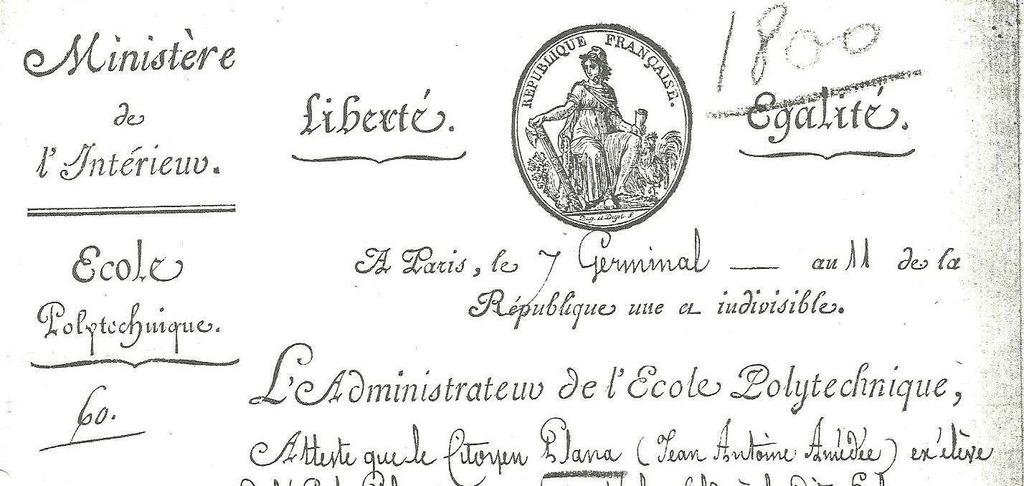 Ministère
de
l'Intérieur.
Liberté.
RÉPUBLIQUE FRANÇAISE.
1800
Egalité.
Ecole
Polytechnique.
60.
A Paris, le 7 Germinal — an 11 de la
République une et indivisible.
L'Administrateur de l'Ecole Polytechnique,
Atteste que le Citoyen Plana (Jean Antoine Amédée) ex élève